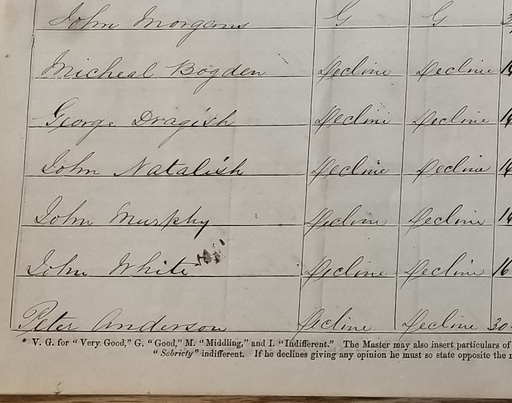 John Morgans G G
Micheal Bogden Decline Decline
George Dragish Decline Decline
John Natalish Decline Decline
John Murphy Decline Decline
John White Decline Decline 16
Peter Anderson Decline Decline 30
* V. G. for "Very Good," G. "Good," M. "Middling," and I. "Indifferent." The Master may also insert particulars of
"Sobriety" indifferent. If he declines giving any opinion he must so state opposite the